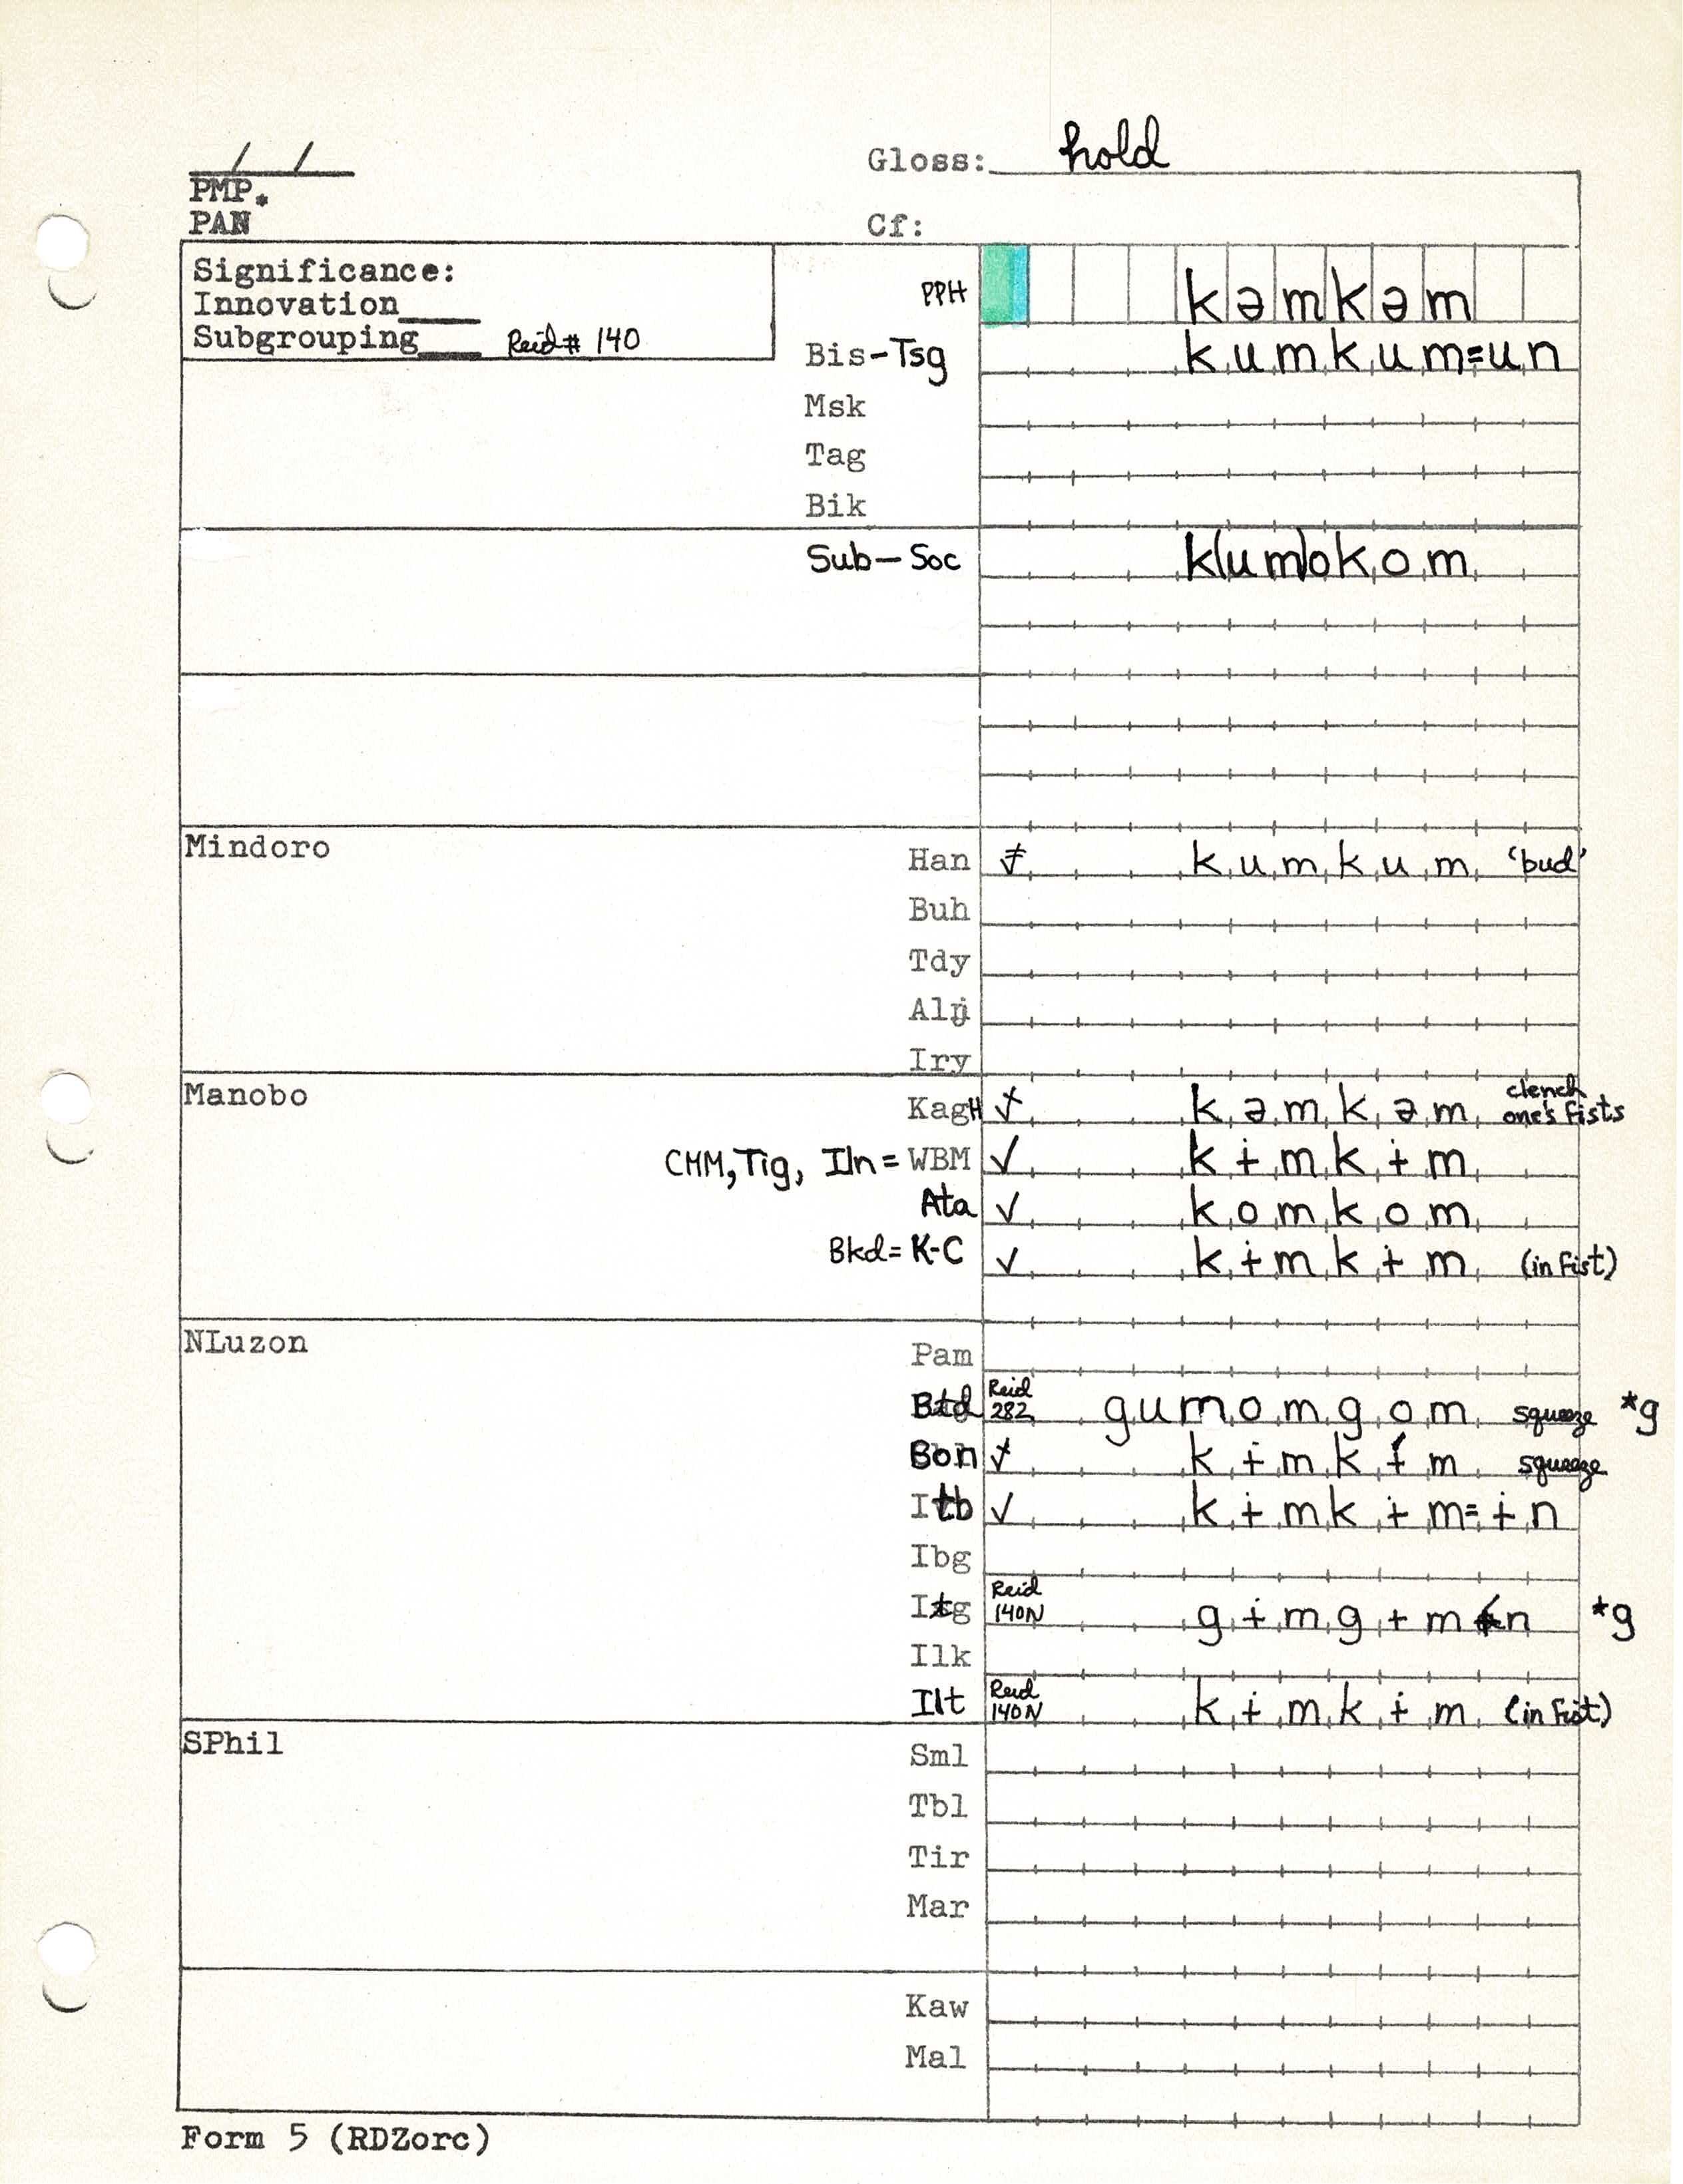 / /
Gloss: hold
PMP.
PAN
Cf:
Significance:
Innovation____
Subgrouping____ Reid# 140
PPH kəmkəm
Bis-Tsg kumkum=un
Msk
Tag
Bik
Sub-Soc k(um)okom
Mindoro
Han ≠ kumkum 'bud'
Buh
Tdy
Alj
Iry
Manobo
KagH ✓ kəmkəm clench one's fists
CMM, Tig, Iln = WBM ✓ kɨmkɨm
Ata ✓ komkom
Bkd= K-C ✓ kɨmkɨm (in fist)
NLuzon
Pam
Btd Reid 282 gumomgom squeeze *g
Bon ✓ kɨmkɨ́m squeeze
Itb ✓ kɨmkɨm=ɨn
Ibg
Itg Reid 140N gɨmgɨmɨn *g
Ilk
Ilt Reid 140N kɨmkɨm (in fist)
SPhil
Sml
Tbl
Tir
Mar
Kaw
Mal
Form 5 (RDZorc)